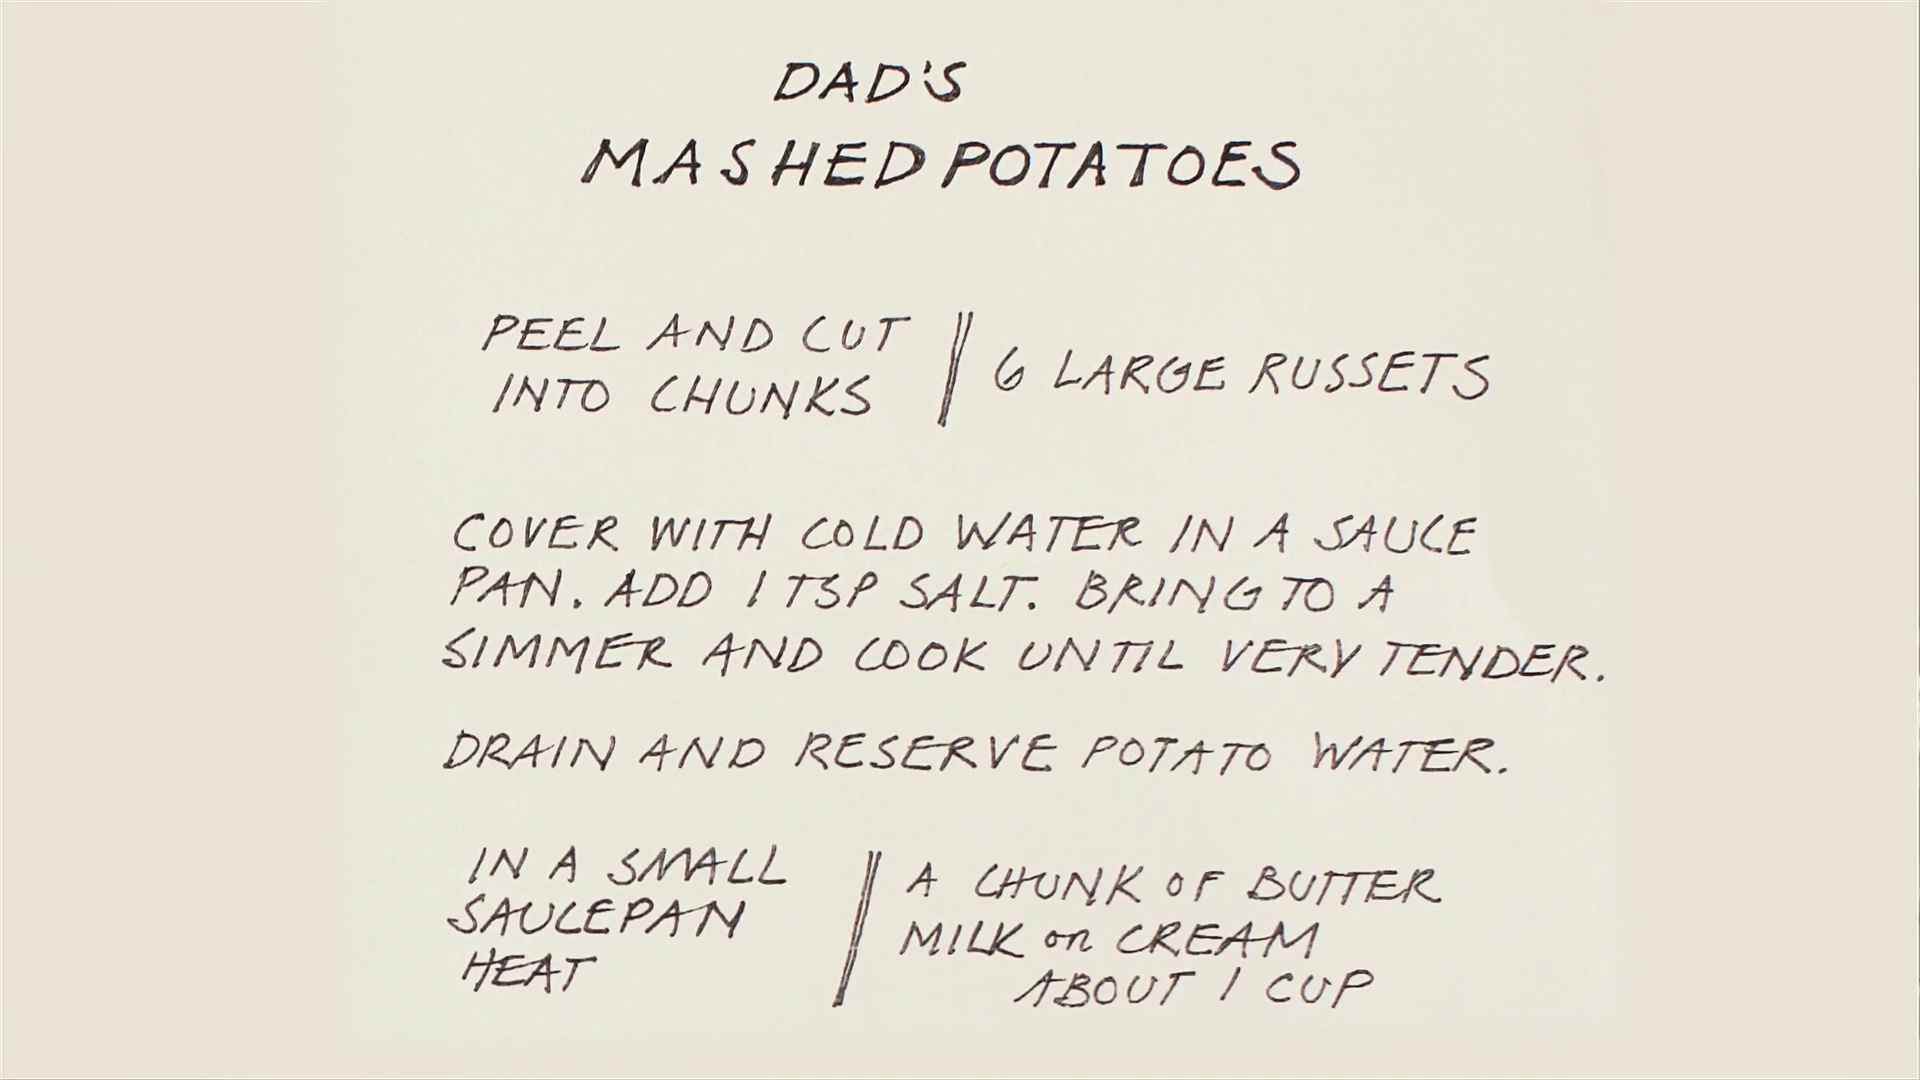 DAD'S
MASHED POTATOES
PEEL AND CUT
INTO CHUNKS
6 LARGE RUSSETS
COVER WITH COLD WATER IN A SAUCE
PAN. ADD 1 TSP SALT. BRING TO A
SIMMER AND COOK UNTIL VERY TENDER.
DRAIN AND RESERVE POTATO WATER.
IN A SMALL
SAUCEPAN
HEAT
A CHUNK OF BUTTER
MILK or CREAM
ABOUT 1 CUP